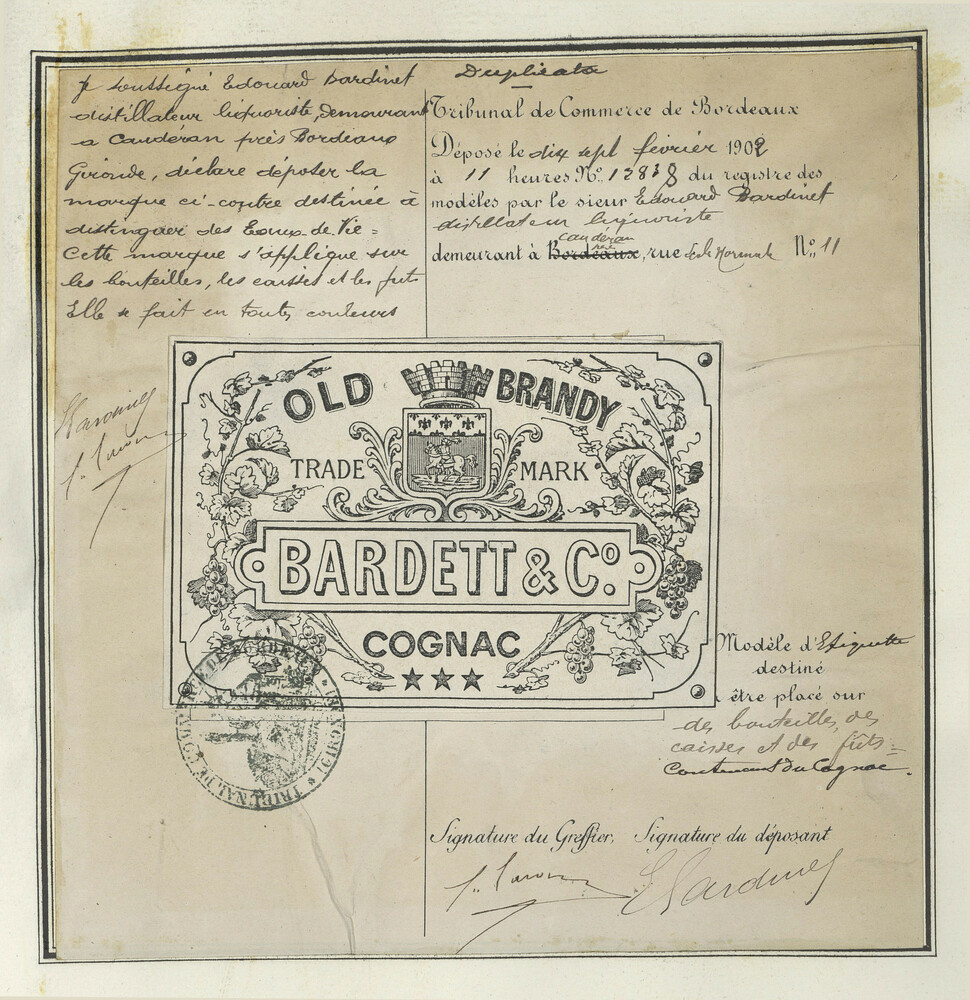 Je soussigné Edouard Bardinet
distillateur liquoriste, demeurant
a Caudéran près Bordeaux
Gironde, déclare déposer la
marque ci-contre destinée à
distinguer des Eaux-de-Vie =
Cette marque s'applique sur
les bouteilles, les caisses et les futs
Elle se fait en toutes couleurs
Duplicata
Tribunal de Commerce de Bordeaux
Déposé le dix sept février 1902
à 11 heures No. 12838 du registre des
modèles par le sieur Edouard Bardinet
distillateur liquoriste
caudéran
demeurant à Bordeaux, rue No. 11
OLD BRANDY
TRADE MARK
BARDETT & Co.
COGNAC
★★★
TRIBUNAL DE COMMERCE DE BORDEAUX
Modèle d'Etiquette
destiné
être placé sur
des bouteilles, des
caisses et des fûts =
Contenant du Cognac.
Signature du Greffier, Signature du déposant
E Bardinet